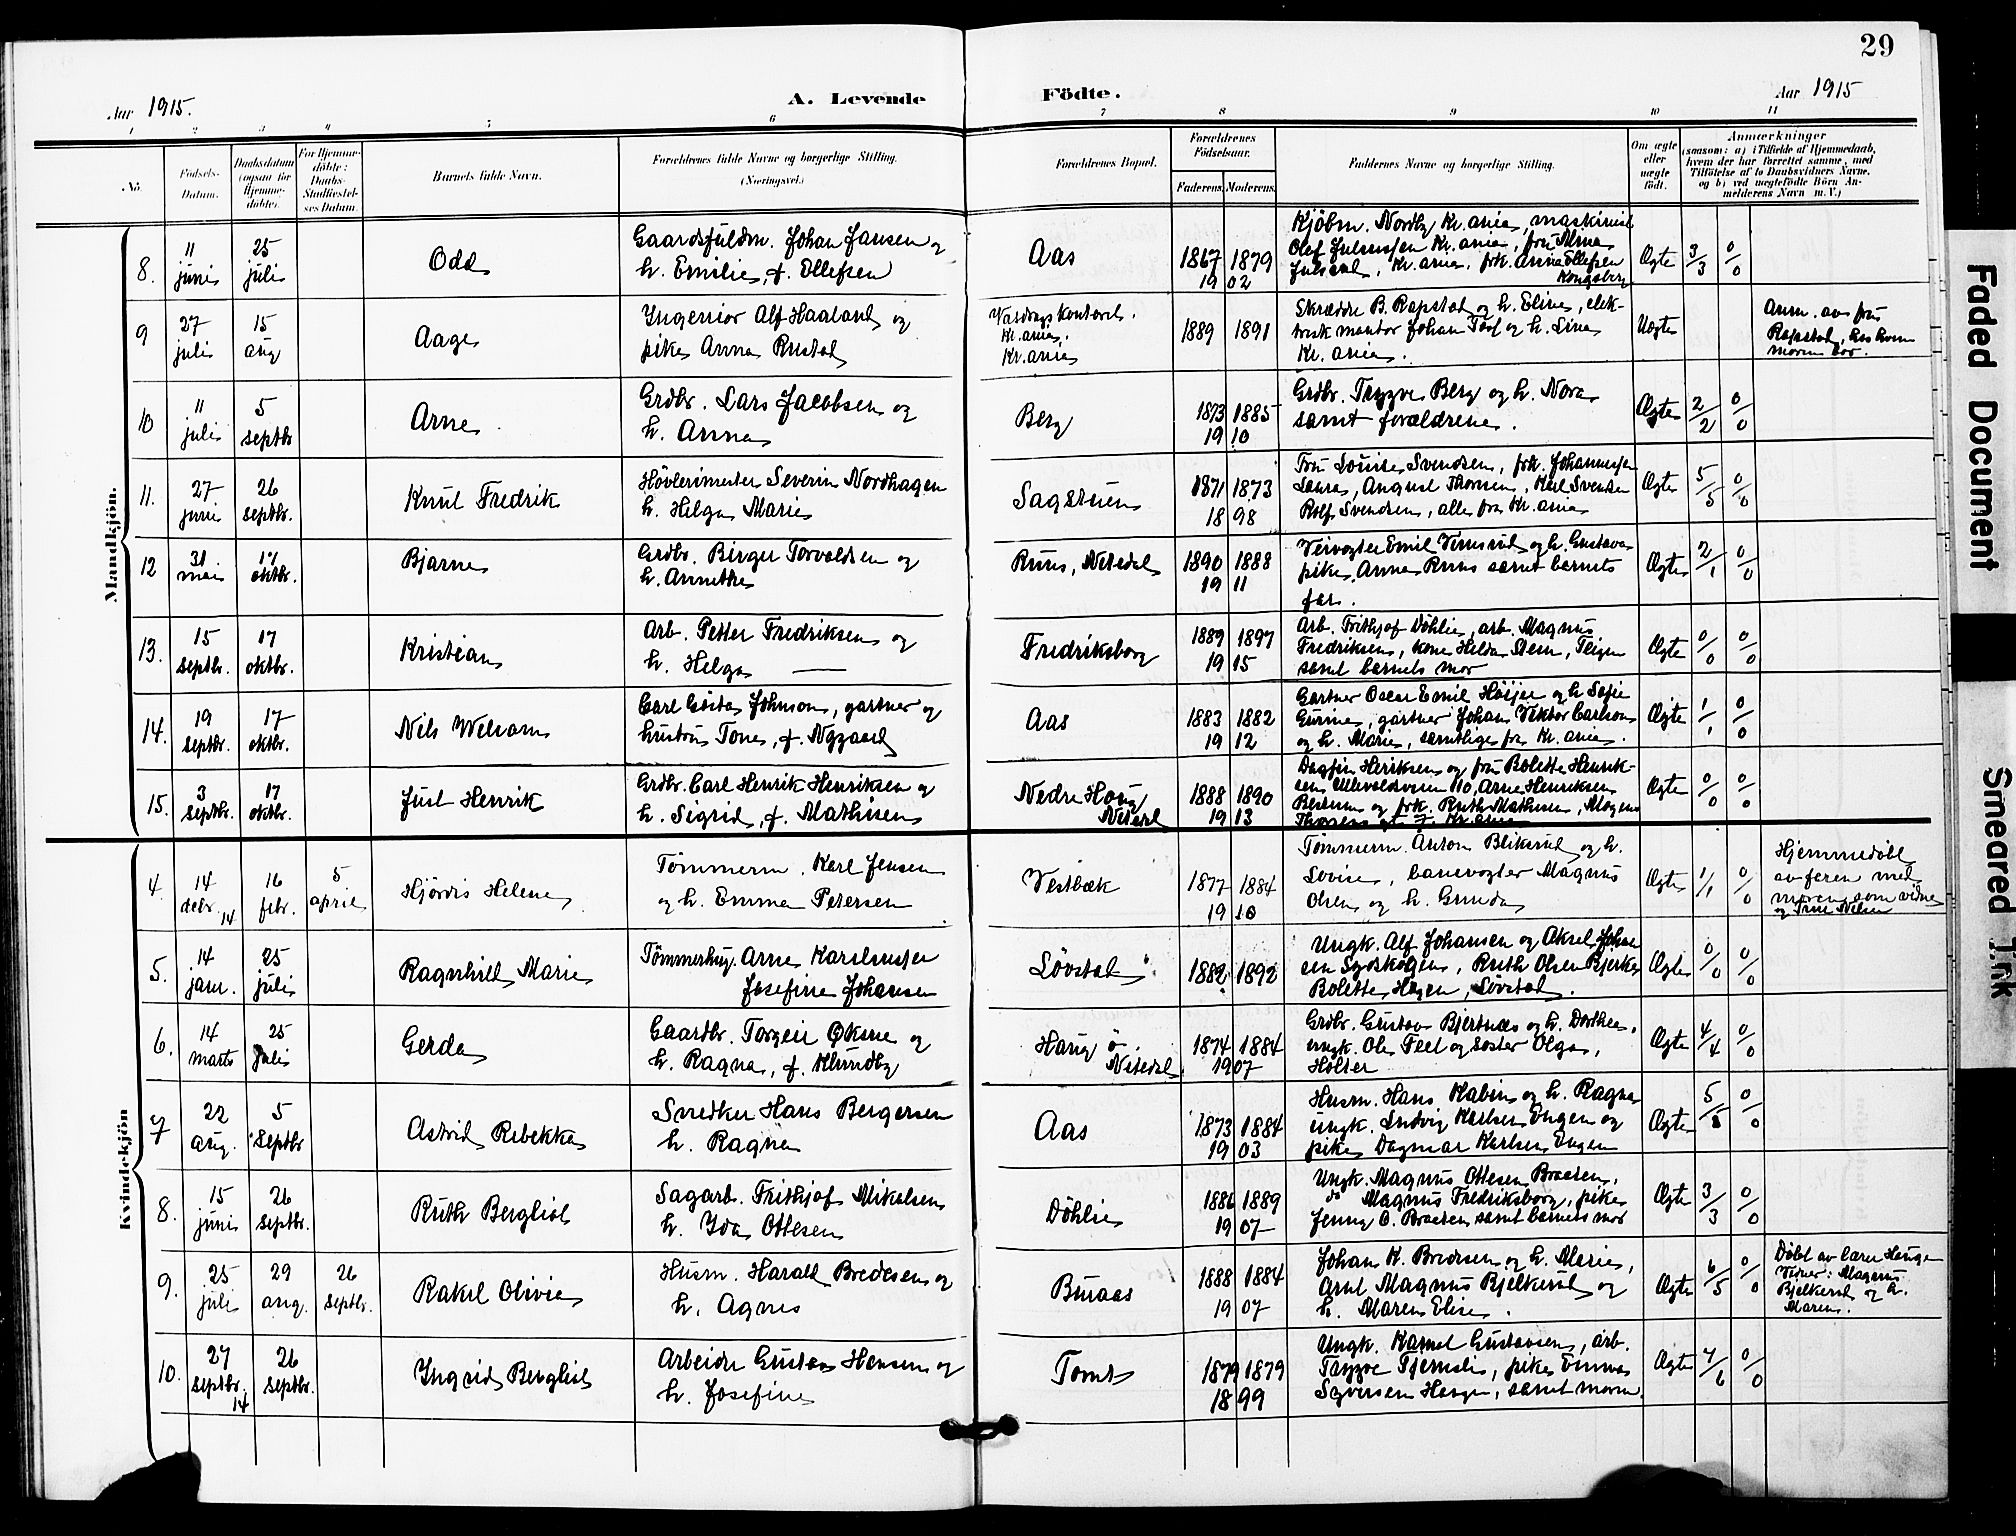 29
Aar 1915.
A. Levende
Födte.
Aar 1915
1 2 3 4 5 6 7 8 9 10 11
No.
Födsels-
Datum.
Daabsdatum
(ogsaa for
Hjemme-
döbte).
For Hjemme-
döbte:
Daabs-
Stadfæstel-
ses Datum.
Barnets fulde Navn.
Forældrenes fulde Navne og borgerlige Stilling.
(Næringsvei.)
Forældrenes Bopæl.
Forældrenes
Födselsaar.
Faderens. Moderens.
Faddernes Navne og borgerlige Stilling.
Om ægte
eller
uægte
födt.
Anmærkninger
(saasom: a) i Tilfælde af Hjemmedaab,
hvem der har forrettet samme, med
Tilföielse af to Daabsvidners Navne.
og b) ved uægtefödte Börn An-
melderens Navn m. V.)
Mandkjön.
8. 11 juni 25 juli Odd
Gaardsfuldm. Johan Jansen og
h. Emilie, f. Ellefsen
Aas 1867 1879 1902
Kjöbm. Nordby Kr.ania, maskinist
Olaf Julsrudsen Kr.ania, fru Alma
Julsrud, Kr.ania, frk. Anna Ellefsen
Kongsberg
Ægte 3/3 0/0
9 27 juli 15 aug Aage
Ingeniör Alf Haaland og
pike Anna Rustad
Vasdragskontoret.
Kr.ania.
Kr.ania
1889 1891
Skrædder B. Rapstad og h. Eline, elek-
trisk montör Johan Torf og h. Lina
Kr.ania.
Uægte
Anm. av fru
Rapstad, hos hvem
moren bor.
10 11 juli 5 septbr Arne
Grdbr. Lars Jacobsen og
h. Anna
Berg 1873 1885 1910
Grdbr. Trygve Berg og h. Nora
samt forældrene.
Ægte 2/2 0/0
11. 27 juni 26 septbr. Knut Fredrik
Hövlerimester Severin Nordhagen
h. Helga Marie
Sagstuen 1871 1873 1898
Fru Louise Svendsen, frk. Johannessen
Laura, August Thorsen, Karl Svendsen
Rolf Svendsen, alle fra Kr.ania
Ægte 5/5 0/0
12 31 mai 17 oktbr. Bjarne
Grdbr. Birger Torvaldsen og
h. Annethe
Ruus, Nitedal 1890 1888 1911
Veivogter Emil Vinsrud og h. Gustava
pike Anna Ruus samt barnets
far.
Ægte 2/1 0/0
13. 15 septbr. 17 oktbr. Kristian
Arb. Petter Fredriksen og
h. Helga —
Fredriksborg 1889 1897 1915
Arb. Frithjof Döhlie, arb. Magnus
Fredriksen, kone Helda Steen, Teigen
samt barnets mor
Ægte 0/0 0/0
14. 19 septbr. 17 oktbr. Nils Weliam
Carl Gösta Johnson, gartner og
hustru Tone, f. Nygaard
Aas 1883 1882 1912
Gartner Oscar Emil Höijer og h. Sofie
Gurine, gartner Johan Viktor Carlson
og h. Marie, samtlige fra Kr.ania.
Ægte 1/1 0/0
15. 3 septbr. 17 oktbr. Just Henrik
Grdbr. Carl Henrik Henriksen og
h. Sigrid, f. Mathisen
Nedre Haug
Nitedal
1888 1890 1913
Dagfin Henriksen og fru Bolette Henrik-
sen Ullevoldsveien 110, Arne Henriksen
Bestum og frk. Ruth Mathisen, Mogens
Thorsens gt. 7 Kr.ania
Ægte 0/0 0/0
Kvindekjön
4. 14 debr. 14 16 febr. 5 april Hjördis Helene
Tömmerm. Karl Jensen
og h. Emma Petersen
Vestbæk 1877 1884 1910
Tömmerm. Anton Bliksrud og h.
Lovise, banevogter Magnus
Olsen og h. Gunda
Ægte 1/1 0/0
Hjemmedöbt
av faren med
moren som vidne
og Trine Nilsen
5. 14 janr. 25 juli Ragnhild Marie
Tömmerhug. Arne Kareliussen
Josefine Johansen
Lövstad 1882 1892
Ungk. Alf Johansen og Aksel Johan-
sen Sydskogen, Ruth Olsen Bjerke
Bolette Hagen, Lövstad.
Ægte 0/0 0/0
6. 14 marts 25 juli Gerda
Gaardbr. Torgeir Øksne og
h. Ragna, f. Klundby
Haug ö.
Nitedal
1874 1884 1907
Grdbr. Gustav Bjertnæs og h. Dorthea,
ungk. Ole Teet og söster Olga,
Holter
Ægte 4/4 0/0
7 22 aug. 5 septbr Astrid Rebekka
Snedker Hans Bergersen
h. Ragna
Aas 1873 1884 1903
Husm. Hans Kabin og h. Ragna
ungk. Ludvig Karlsen Engen og
pike Dagmar Karlsen Engen
Ægte 5/5 0/0
8. 15 juni 26 septbr. Ruth Bergliot
Sagarb. Frithjof Mikalsen
h. Ida Ottesen
Döhlie 1886 1889 1907
Ungk. Magnus Ottesen Braaten,
do Magnus Fredriksborg, pike
Jenny O. Braaten samt barnets mor
Ægte 3/3 0/0
9. 25 juli 29 aug. 26 septbr. Rakel Olivie
Husm. Harald Bredesen og
h. Agnes
Buraas 1888 1884 1907
Johan K. Bredesen og h. Marie,
Arnt Magnus Bjelkerud og
h. Maren Elise.
Ægte 6/5 0/0
Döbt av lærer Hauge
Vidner: Magnus
Bjelkerud og h.
Maren.
10. 27 septbr. 14 26 septbr. Ingrid Bergliot
Arbeider Gustav Hansen og
h. Josefine
Tomt 1879 1879 1899
Ungk. Kornel Gustavsen, arb.
Trygve Tjernsli, pike Emma
Syversen Haugen, samt moren.
Ægte 7/6 0/0
Faded Document
Smeared Ink